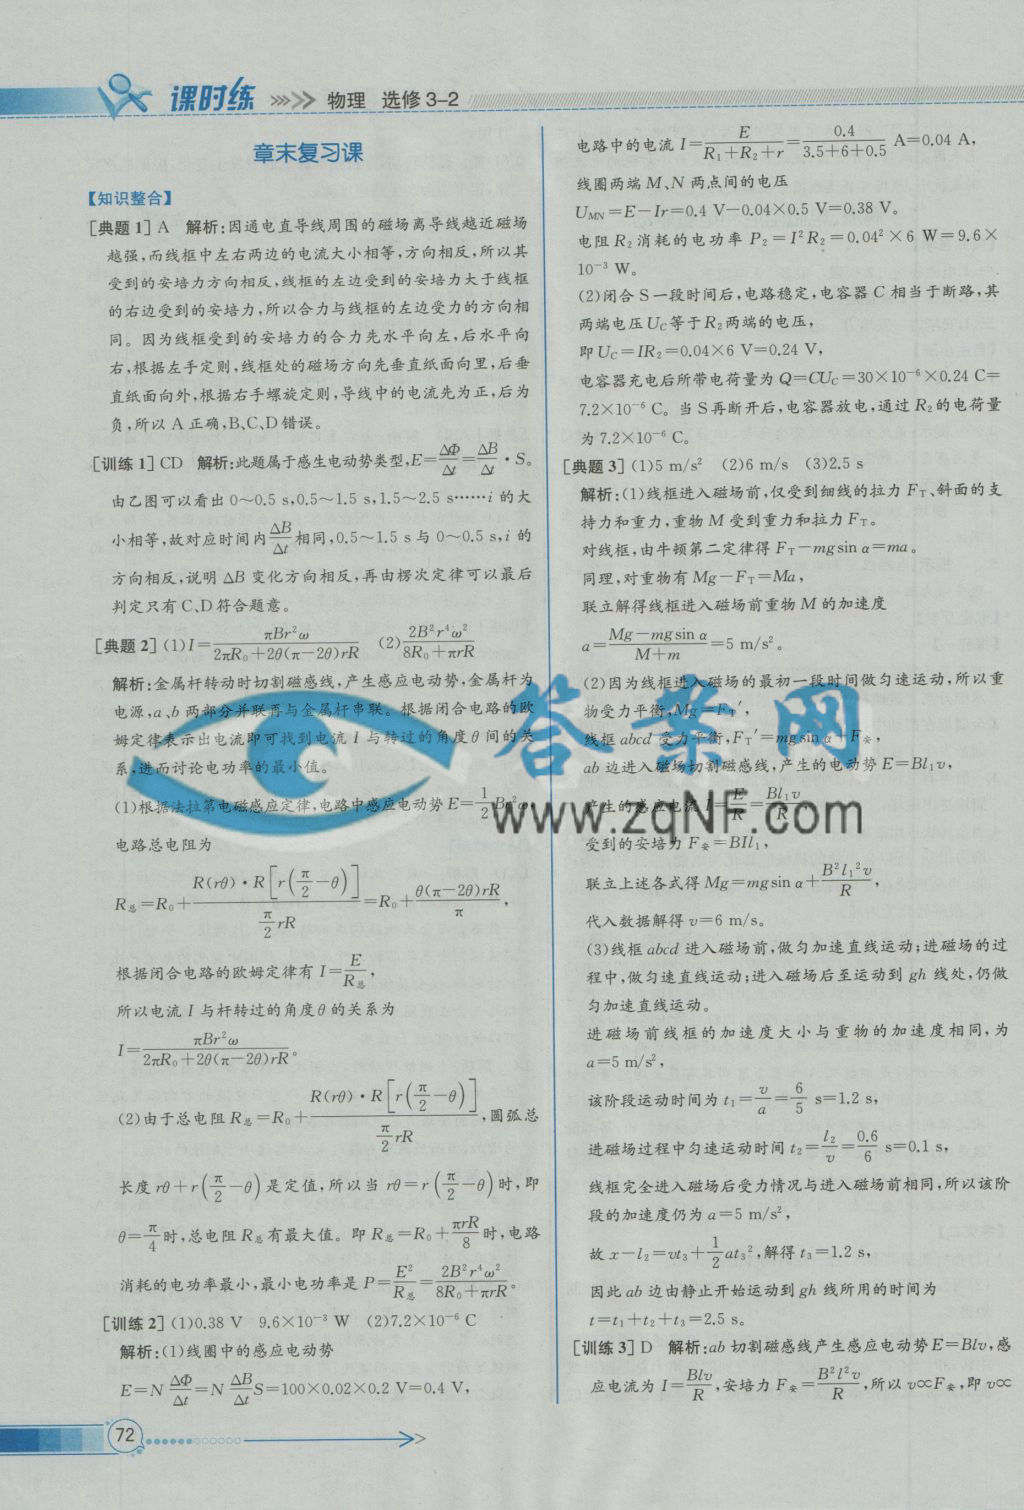 课时练 物理 选修3-2
章末复习课
【知识整合】
[典题1] A 解析:因通电直导线周围的磁场离导线越近磁场
越强,而线框中左右两边的电流大小相等,方向相反,所以其
受到的安培力方向相反,线框的左边受到的安培力大于线框
的右边受到的安培力,所以合力与线框的左边受力的方向相
同。因为线框受到的安培力的合力先水平向左,后水平向
右,根据左手定则,线框处的磁场方向先垂直纸面向里,后垂
直纸面向外,根据右手螺旋定则,导线中的电流先为正,后为
负,所以A正确,B、C、D错误。
[训练1] CD 解析:此题属于感生电动势类型,E=ΔΦ/Δt=ΔB/Δt·S。
由乙图可以看出0~0.5 s,0.5~1.5 s,1.5~2.5 s……i的大
小相等,故对应时间内ΔB/Δt相同,0.5~1.5 s与0~0.5 s,i的
方向相反,说明ΔB变化方向相反,再由楞次定律可以最后
判定只有C、D符合题意。
[典题2] (1)I=πBr²ω/(2πR₀+2θ(π-2θ)rR) (2)2B²r⁴ω²/(8R₀+πrR)
解析:金属杆转动时切割磁感线,产生感应电动势,金属杆为
电源,a、b两部分并联再与金属杆串联。根据闭合电路的欧
姆定律表示出电流即可找到电流I与转过的角度θ间的关
系,进而讨论电功率的最小值。
(1)根据法拉第电磁感应定律,电路中感应电动势E=1/2Br²ω,
电路总电阻为
R总=R₀+R(rθ)·R[r(π/2-θ)]/(π/2 rR)=R₀+θ(π-2θ)rR/π,
根据闭合电路的欧姆定律有I=E/R总,
所以电流I与杆转过的角度θ的关系为
I=πBr²ω/(2πR₀+2θ(π-2θ)rR)。
(2)由于总电阻R总=R₀+R(rθ)·R[r(π/2-θ)]/(π/2 rR),圆弧总
长度rθ+r(π/2-θ)是定值,所以当rθ=r(π/2-θ)时,即
θ=π/4时,总电阻R总有最大值。即R总=R₀+πrR/8时,电路
消耗的电功率最小,最小电功率是P=E²/R总=2B²r⁴ω²/(8R₀+πrR)。
[训练2] (1)0.38 V 9.6×10⁻³ W (2)7.2×10⁻⁶ C
解析:(1)线圈中的感应电动势
E=NΔΦ/Δt=NΔB/Δt S=100×0.02×0.2 V=0.4 V,
电路中的电流I=E/(R₁+R₂+r)=0.4/(3.5+6+0.5) A=0.04 A,
线圈两端M、N两点间的电压
U_MN=E-Ir=0.4 V-0.04×0.5 V=0.38 V。
电阻R₂消耗的电功率P₂=I²R₂=0.04²×6 W=9.6×
10⁻³ W。
(2)闭合S一段时间后,电路稳定,电容器C相当于断路,其
两端电压U_C等于R₂两端的电压,
即U_C=IR₂=0.04×6 V=0.24 V,
电容器充电后所带电荷量为Q=CU_C=30×10⁻⁶×0.24 C=
7.2×10⁻⁶ C。当S再断开后,电容器放电,通过R₂的电荷量
为7.2×10⁻⁶ C。
[典题3] (1)5 m/s² (2)6 m/s (3)2.5 s
解析:(1)线框进入磁场前,仅受到细线的拉力F_T、斜面的支
持力和重力,重物M受到重力和拉力F_T。
对线框,由牛顿第二定律得F_T-mgsin α=ma。
同理,对重物有Mg-F_T=Ma,
联立解得线框进入磁场前重物M的加速度
a=(Mg-mgsin α)/(M+m)=5 m/s²。
(2)因为线框进入磁场的最初一段时间做匀速运动,所以重
物受力平衡,Mg=F_T′,
线框abcd受力平衡,F_T′=mgsin α+F安,
ab边进入磁场切割磁感线,产生的电动势E=Bl₁v,
产生的感应电流I=E/R=Bl₁v/R,
受到的安培力F安=BIl₁,
联立上述各式得Mg=mgsin α+B²l₁²v/R,
代入数据解得v=6 m/s。
(3)线框abcd进入磁场前,做匀加速直线运动;进磁场的过
程中,做匀速直线运动;进入磁场后至运动到gh线处,仍做
匀加速直线运动。
进磁场前线框的加速度大小与重物的加速度相同,为
a=5 m/s²,
该阶段运动时间为t₁=v/a=6/5 s=1.2 s,
进磁场过程中匀速运动时间t₂=l₂/v=0.6/6 s=0.1 s,
线框完全进入磁场后受力情况与进入磁场前相同,所以该阶
段的加速度仍为a=5 m/s²,
故x-l₂=vt₃+1/2at₃²,解得t₃=1.2 s,
因此ab边由静止开始运动到gh线所用的时间为
t=t₁+t₂+t₃=2.5 s。
[训练3] D 解析:ab切割磁感线产生感应电动势E=Blv,感
应电流为I=Blv/R,安培力F安=B²l²v/R,所以v∝F安,即v∝
答案网
www.zqNF.com
72